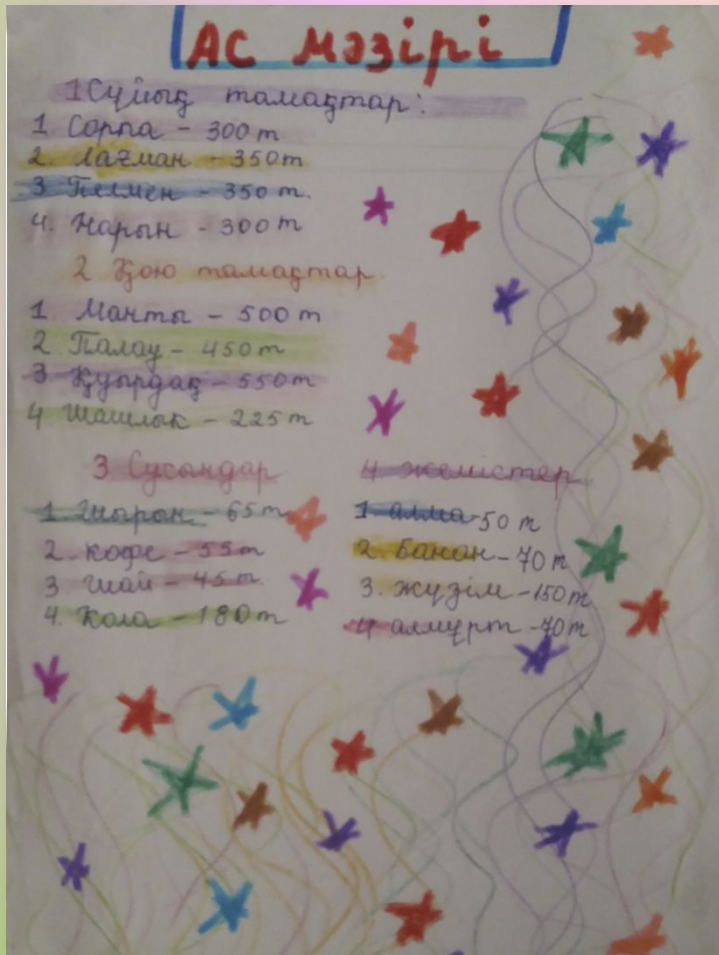 Ас мәзірі
1 Сұйық тамақтар:
1. Сорпа - 300 т
2. Лағман - 350 т
3 Пелмен - 350 т.
4. Нарын - 300 т
2 Қою тамақтар.
1. Манты - 500 т
2 Палау - 450 т
3 Қуырдақ - 550 т
4 Шашлык - 225 т
3 Сусындар
1 Шырын - 65 т
2. кофе - 55 т
3 шай - 45 т.
4. Кола - 180 т
4 жемістер
1 алма - 50 т
2. Банан - 70 т
3. жүзім - 150 т
4 алмұрт - 70 т